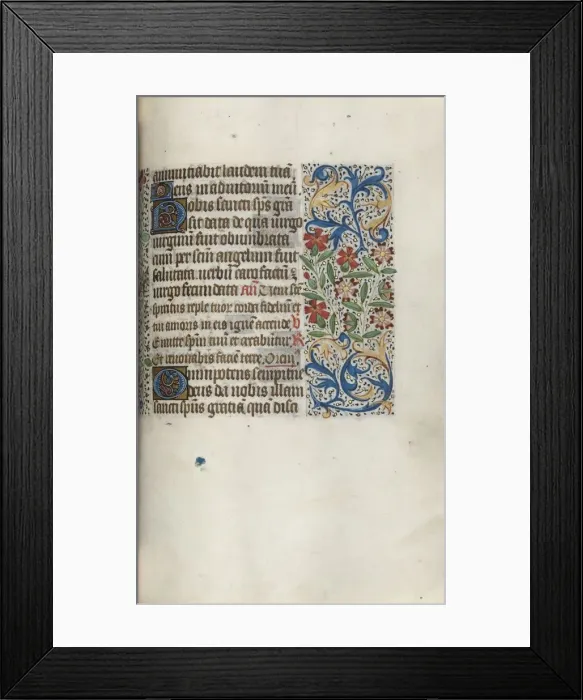 annuntiabit laudem tuā
Deus in adiutoriū meū
Nobis sancti sp̄s grā
sit data de qua virgo
virginū fuit obumbrata
cum per scm̄ angelum fuit
salutata verbū caro factū ē
virgo fecundata Añ Veni sc̄e
spiritus reple tuoꝝ corda fideliū et
tui amoris in eis ignē accende V
Emitte sp̄m tuū et creabūtur R
Et renovabis faciē terre. Orō.
Omnipotens sempiterne
deus da nobis illam
sancti sp̄us gratiā quā disci